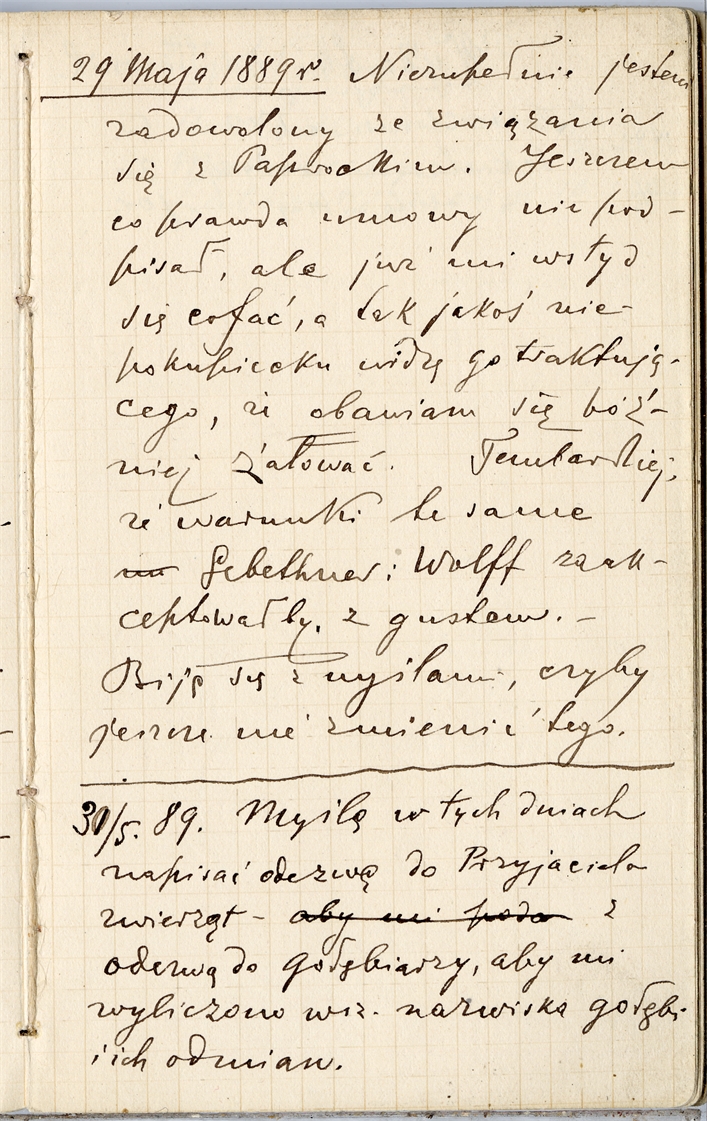 29 Maja 1889 r. Niezupełnie jestem
zadowolony ze związania
się z Paprockim. Jeszczem
co prawda umowy nie pod-
pisał, ale już mi wstyd
się cofać, a tak jakoś nie-
pokupiecku widzę go traktują-
cego, że obawiam się póź-
niej żałować. Tembardziej,
że warunki te same
Gebethner i Wolff zaak-
ceptowałby, z gustem. –
Biję się z myślami, czyby
jeszcze nie zmienić tego.
30/5. 89. Myślę w tych dniach
napisać odezwę do Przyjaciela
zwierząt – aby mi poda z
odezwą do gołębiarzy, aby mi
wyliczono wsz. nazwiska gołębi
i ich odmian.